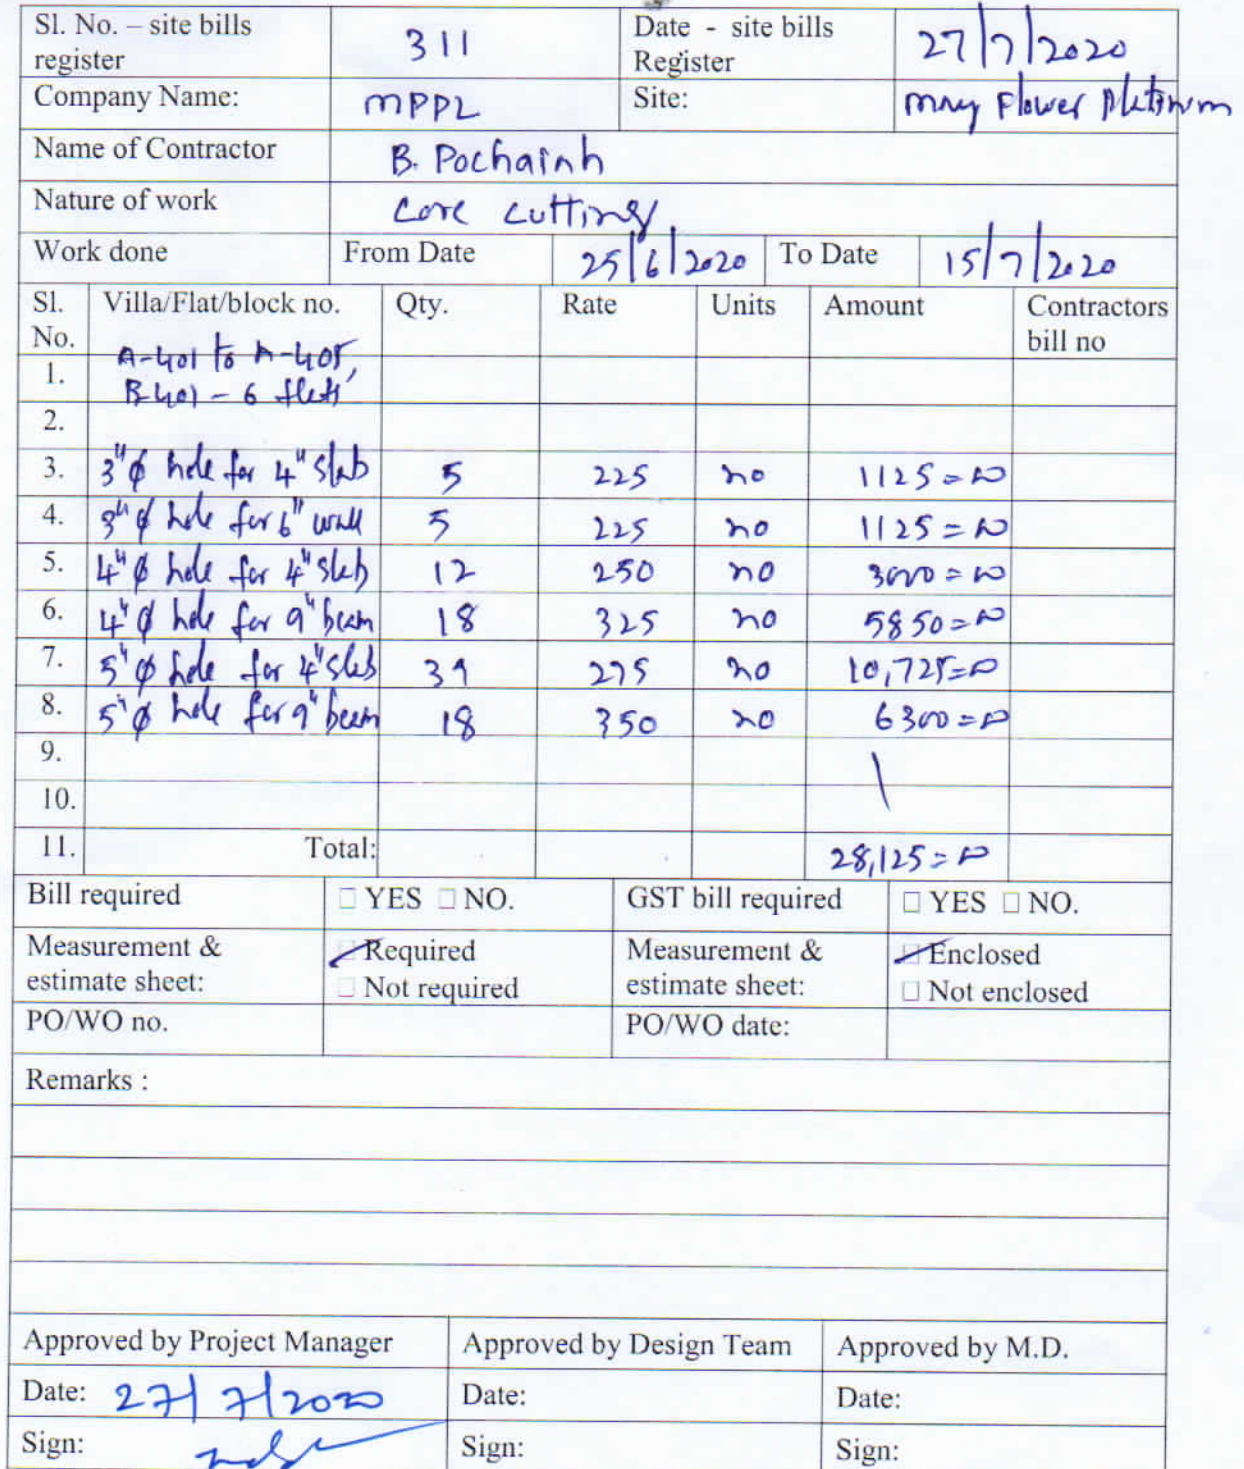 Sl. No. – site bills register 311 Date - site bills Register 27/7/2020
Company Name: MPPL Site: May Flower Platinum
Name of Contractor B. Pochaiah
Nature of work Core cutting
Work done From Date 25/6/2020 To Date 15/7/2020
Sl. No. Villa/Flat/block no. Qty. Rate Units Amount Contractors bill no
1. A-401 to A-405,
B-401 - 6 flats
2.
3. 3"φ hole for 4" slab 5 225 no 1125=00
4. 3"φ hole for 6" wall 5 225 no 1125=00
5. 4"φ hole for 4" slab 12 250 no 3000=00
6. 4"φ hole for 9" beam 18 325 no 5850=00
7. 5"φ hole for 4" slab 39 275 no 10,725=00
8. 5"φ hole for 9" beam 18 350 no 6300=00
9.
10.
11. Total: 28,125=00
Bill required □ YES □ NO. GST bill required □ YES □ NO.
Measurement & estimate sheet: Required Measurement & estimate sheet: Enclosed
□ Not required □ Not enclosed
PO/WO no. PO/WO date:
Remarks :
Approved by Project Manager Approved by Design Team Approved by M.D.
Date: 27/7/2020 Date: Date:
Sign: Sign: Sign: